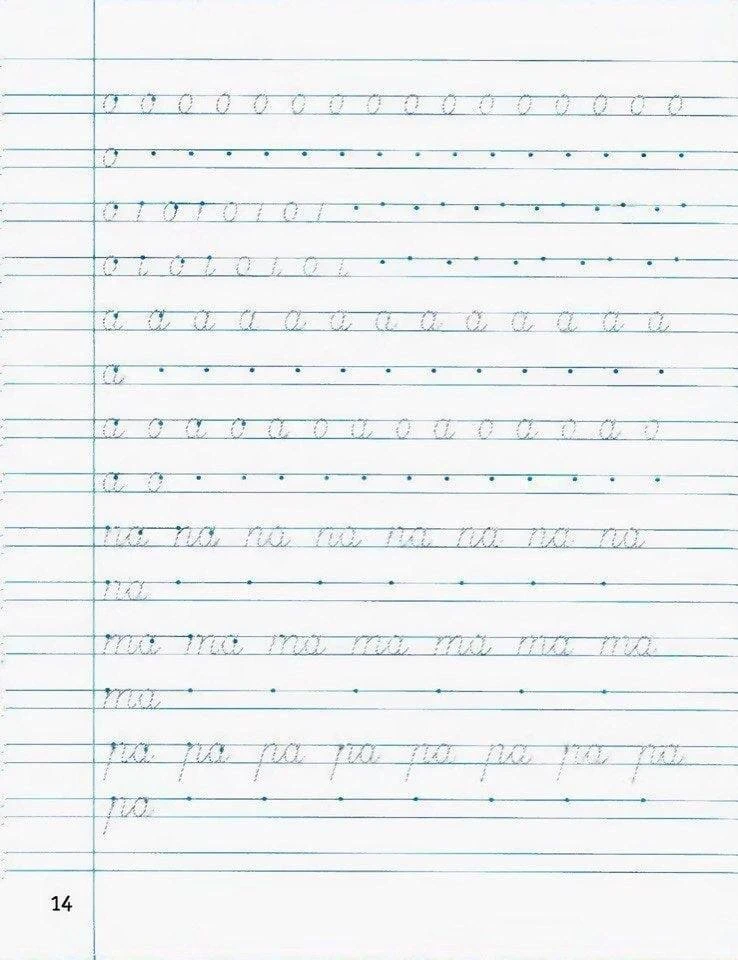 o o o o o o o o o o o o o o o o
o
o ı o ı o ı o ı
o ı o ı o ı o ı
a a a a a a a a a a a a a
a
a o a o a o a o a o a o a o
a o
na na na na na na na na
na
ma ma ma ma ma ma ma
ma
pa pa pa pa pa pa pa pa
pa
14